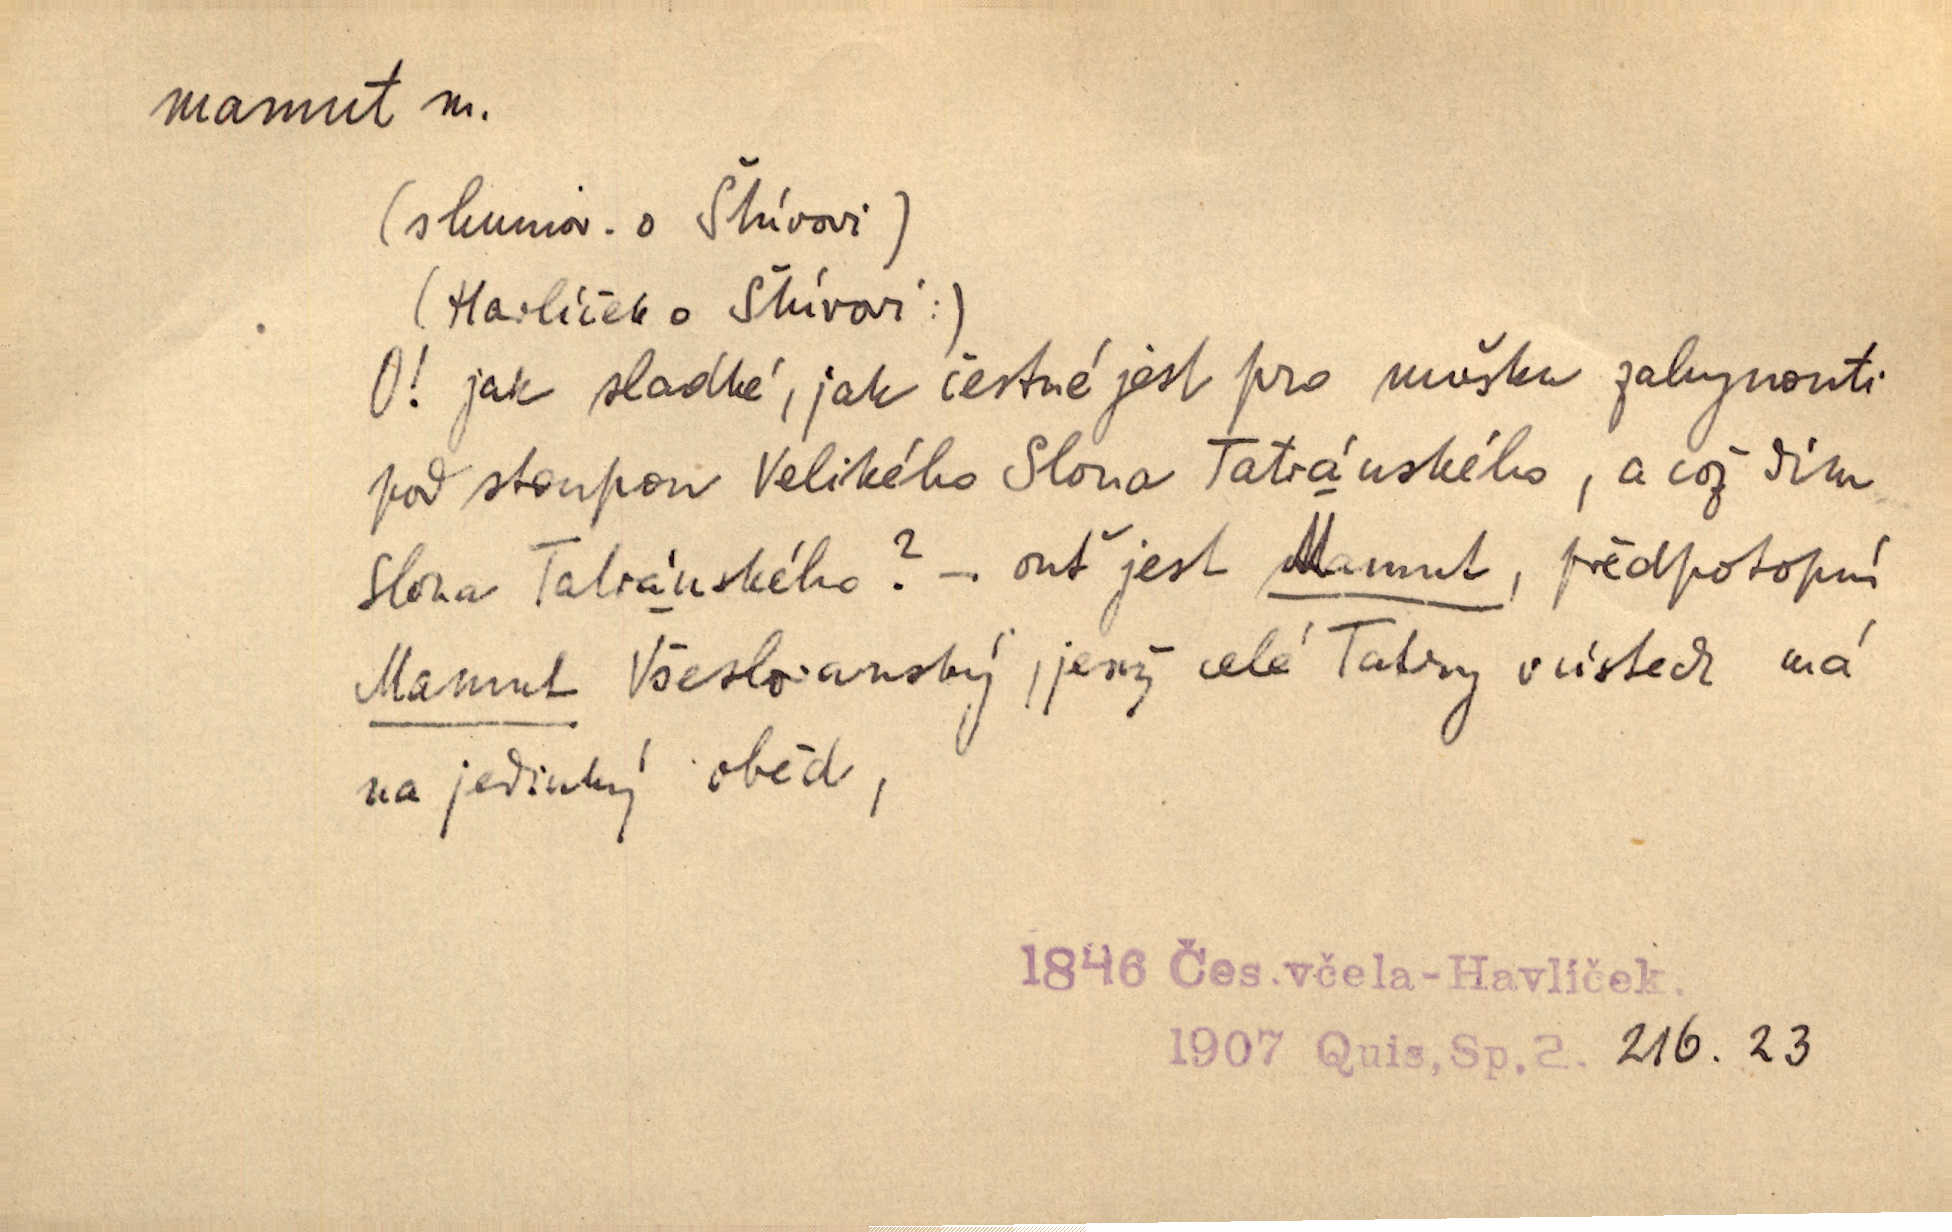 mamut m.
(s humor. o Štúrovi)
(Havlíček o Štúrovi:)
O! jak sladké, jak čestné jest pro mušku zahynouti
pod stoupou Velikého Slona Tatránského, a což dím
Slona Tatránského? – onť jest Mamut, předpotopní
Mamut Všeslovanský, jenž celé Tatry v ústech má
na jedinký oběd,
1846 Čes.včela-Havlíček.
1907 Quis, Sp.2. 216. 23